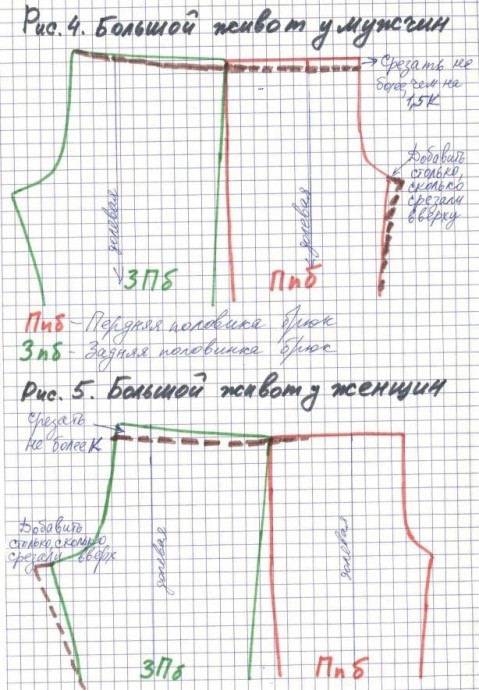 Рис. 4. Большой живот у мужчин
Срезать не
более, чем на
1,5К
Добавить
столько,
сколько
срезали
вверху
долевая
долевая
ЗПб
ПпБ
ПпБ - Пердняя половинка брюк
Зпб - Задняя половинка брюк
Рис. 5. Большой живот у женщин
Срезать
не более К
Добавить
столько, сколько
срезали вверх
долевая
долевая
ЗПб
ПпБ